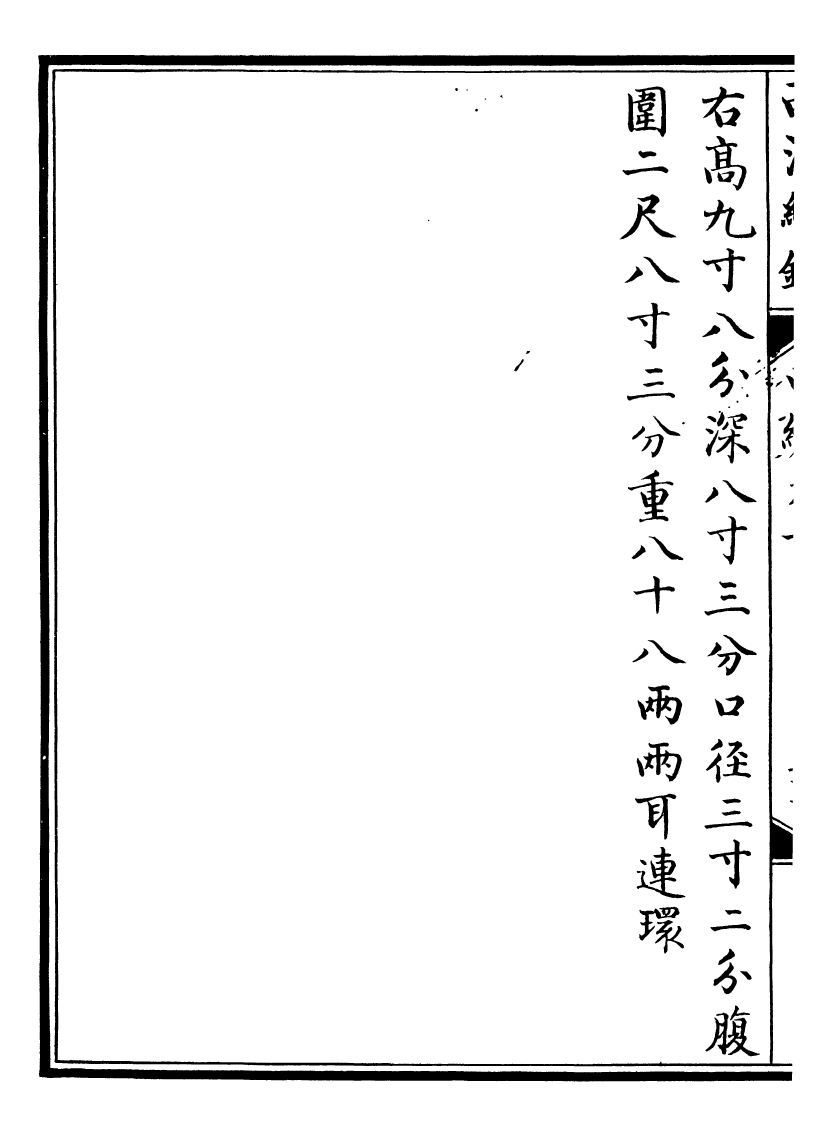 右髙九寸八分深八寸三分口径三寸二分腹
圍二尺八寸三分重八十八兩兩耳連環